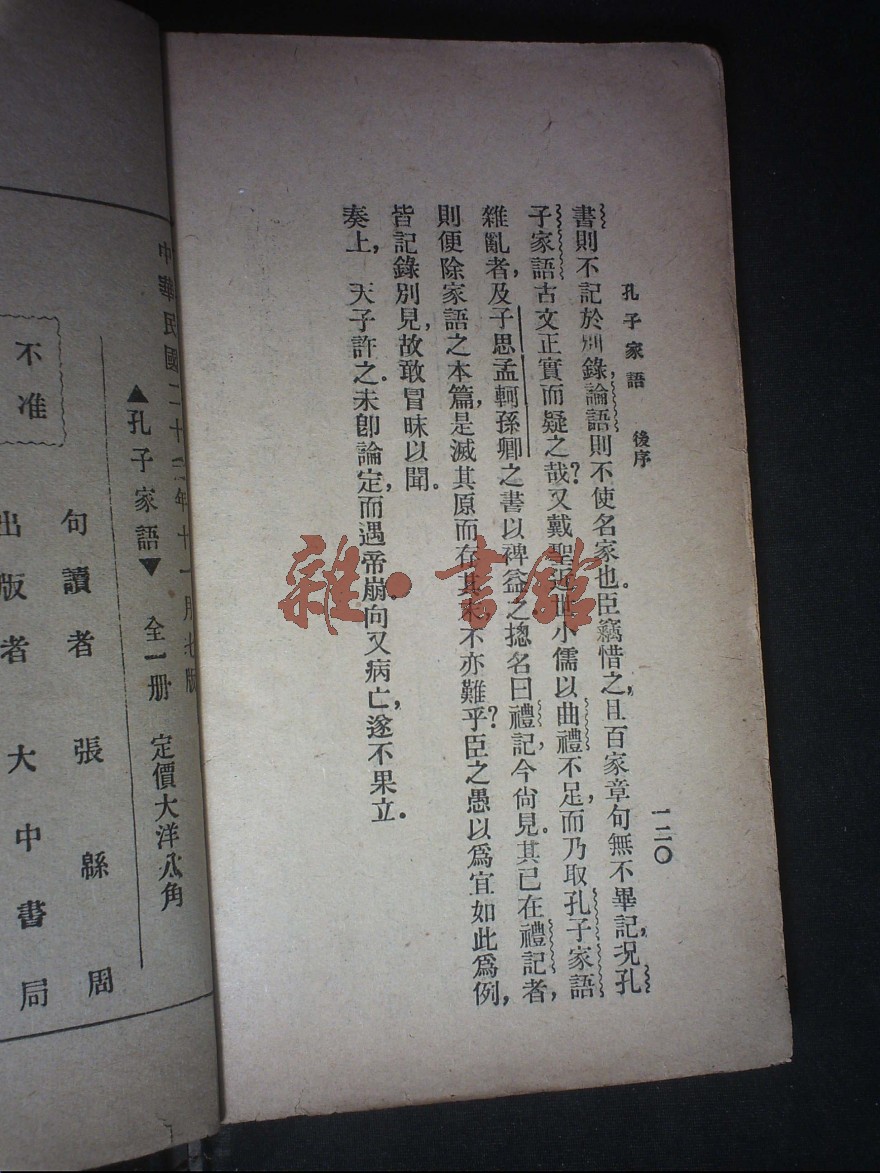 孔子家語　後序　一二〇
書則不記於別錄,論語則不使名家也.臣竊惜之,且百家章句無不畢記,況孔
子家語古文正實而疑之哉?又戴聖近世小儒以曲禮不足,而乃取孔子家語
雜亂者,及子思孟軻孫卿之書以裨益之揔名曰禮記,今尙見.其已在禮記者,
則便除家語之本篇,是滅其原而存其末,不亦難乎?臣之愚以爲宜如此爲例,
皆記錄別見,故敢冒昧以聞.
奏上,　天子許之.未卽論定,而遇帝崩.向又病亡,遂不果立.
雜·書館
中華民國二十三年十一月七版
▲孔子家語▼　全一册　定價大洋八角
句讀者　張緜周
出版者　大中書局
不准